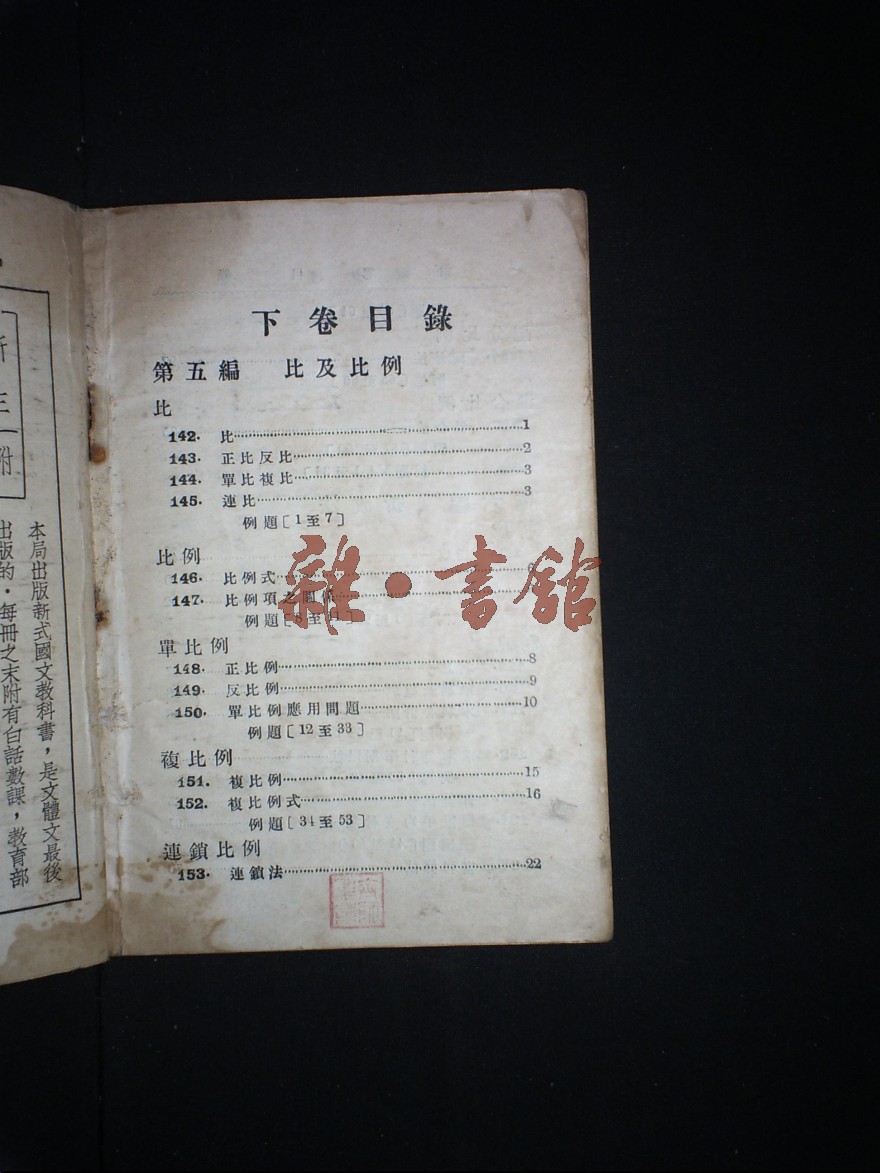 下卷目錄
第五編 比及比例
比
142. 比……1
143. 正比反比……2
144. 單比複比……3
145. 連比……3
例題〔1至7〕
比例
146. 比例式……6
147. 比例項之關係……
例題〔8至11〕
單比例
148. 正比例……8
149. 反比例……9
150. 單比例應用問題……10
例題〔12至33〕
複比例
151. 複比例……15
152. 複比例式……16
例題〔34至53〕
連鎖比例
153. 連鎖法……22
雜·書館
附
本局出版新式國文教科書，是文體文最後
出版的．每冊之末附有白話數課，教育部